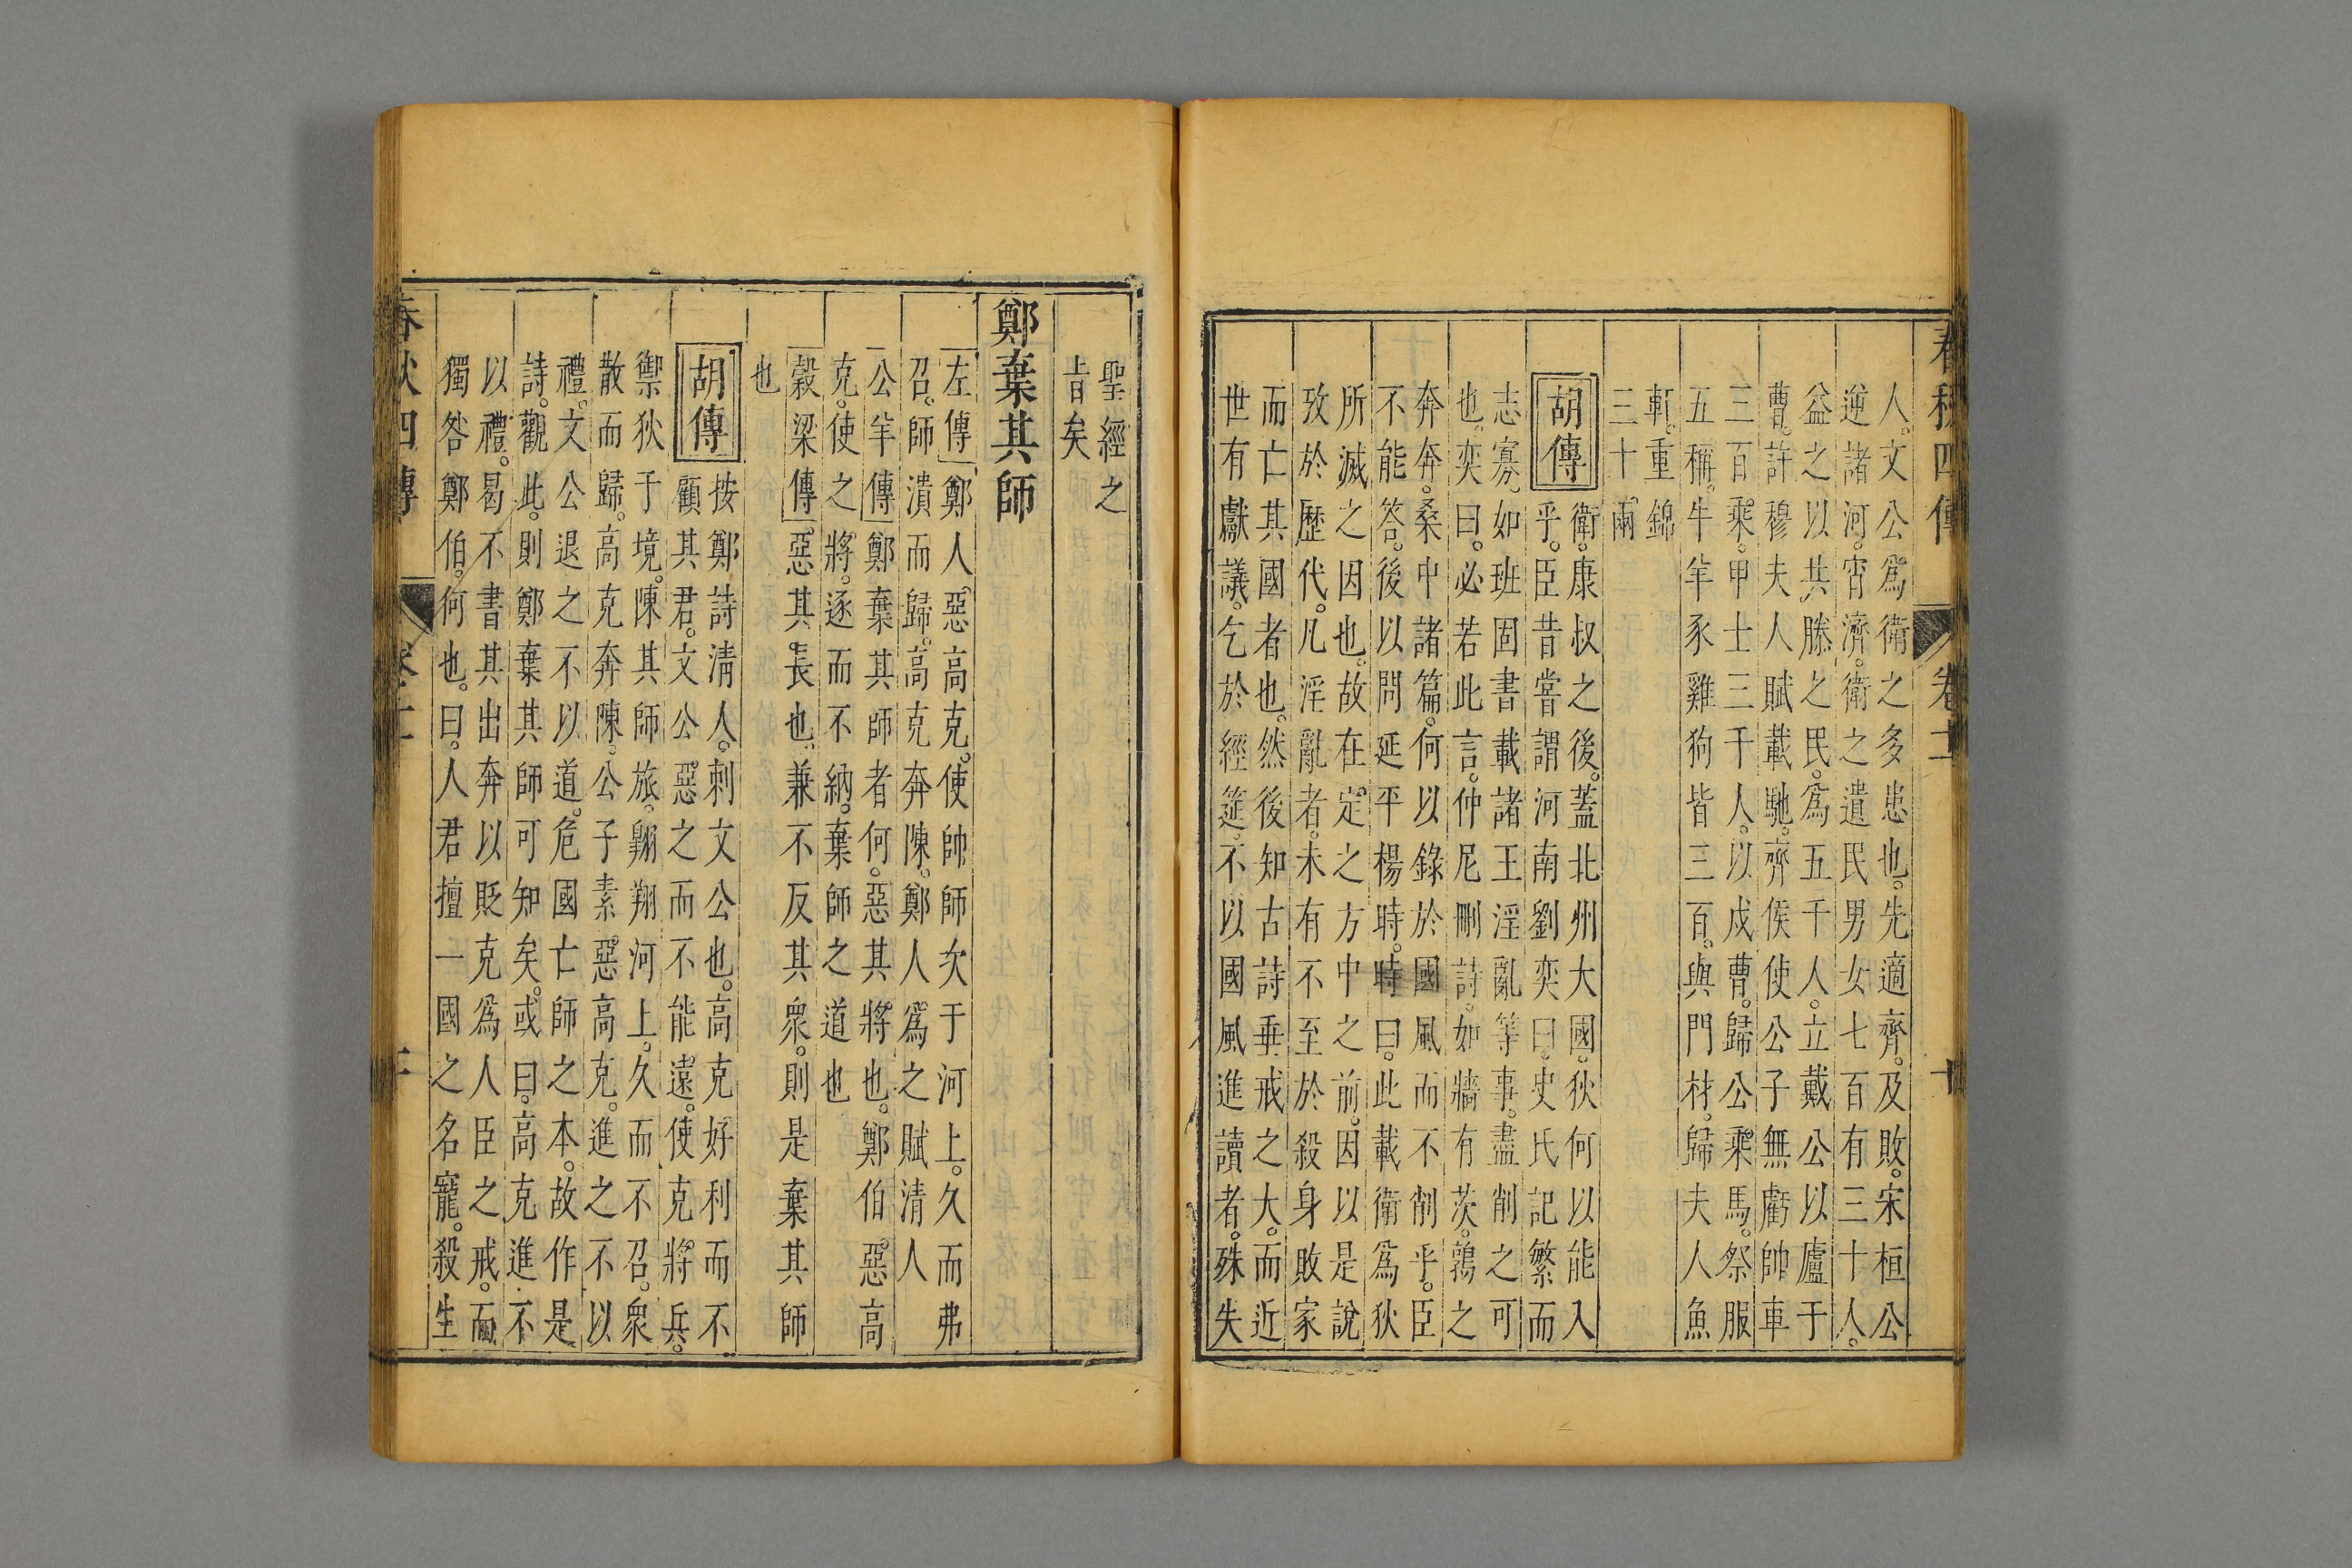 春秋四傳 卷十一 十
人。文公爲衛之多患也。先適齊。及敗。宋桓公
逆諸河。宵濟。衛之遺民男女七百有三十人。
益之以共滕之民。爲五千人。立戴公以廬于
曹。許穆夫人賦載馳。齊侯使公子無虧帥車
三百乘。甲士三千人。以戍曹。歸公乘馬。祭服
五稱。牛羊豕雞狗皆三百。與門材。歸夫人魚
軒。重錦
三十兩
胡傳
衛。康叔之後。蓋北州大國。狄何以能入
乎。臣昔嘗謂河南劉奕曰。史氏記繁而
志寡。如班固書載諸王淫亂等事。盡削之可
也。奕曰。必若此言。仲尼刪詩。如牆有茨。鶉之
奔奔。桑中諸篇。何以錄於國風而不削乎。臣
不能答。後以問延平楊時。時曰。此載衛爲狄
所滅之因也。故在定之方中之前。因以是說
攷於歷代。凡淫亂者。未有不至於殺身敗家
而亡其國者也。然後知古詩垂戒之大。而近
世有獻議。乞於經筵。不以國風進讀者。殊失
聖經之
旨矣
鄭棄其師
左傳鄭人。惡高克。使帥師次于河上。久而弗
召。師潰而歸。高克奔陳。鄭人爲之賦清人
公羊傳鄭棄其師者何。惡其將也。鄭伯。惡高
克。使之將。逐而不納。棄師之道也
穀梁傳。惡其長也。兼不反其眾。則是棄其師
也
胡傳
按鄭詩清人。刺文公也。高克好利而不
顧其君。文公。惡之而不能遠。使克將兵。
禦狄于境。陳其師旅。翱翔河上。久而不召。眾
散而歸。高克奔陳。公子素。惡高克。進之不以
禮。文公退之不以道。危國亡師之本。故作是
詩。觀此。則鄭棄其師可知矣。或曰。高克進不
以禮。曷不書其出奔以貶克爲人臣之戒。而
獨咎鄭伯。何也。曰。人君擅一國之名寵。殺生
春秋四傳